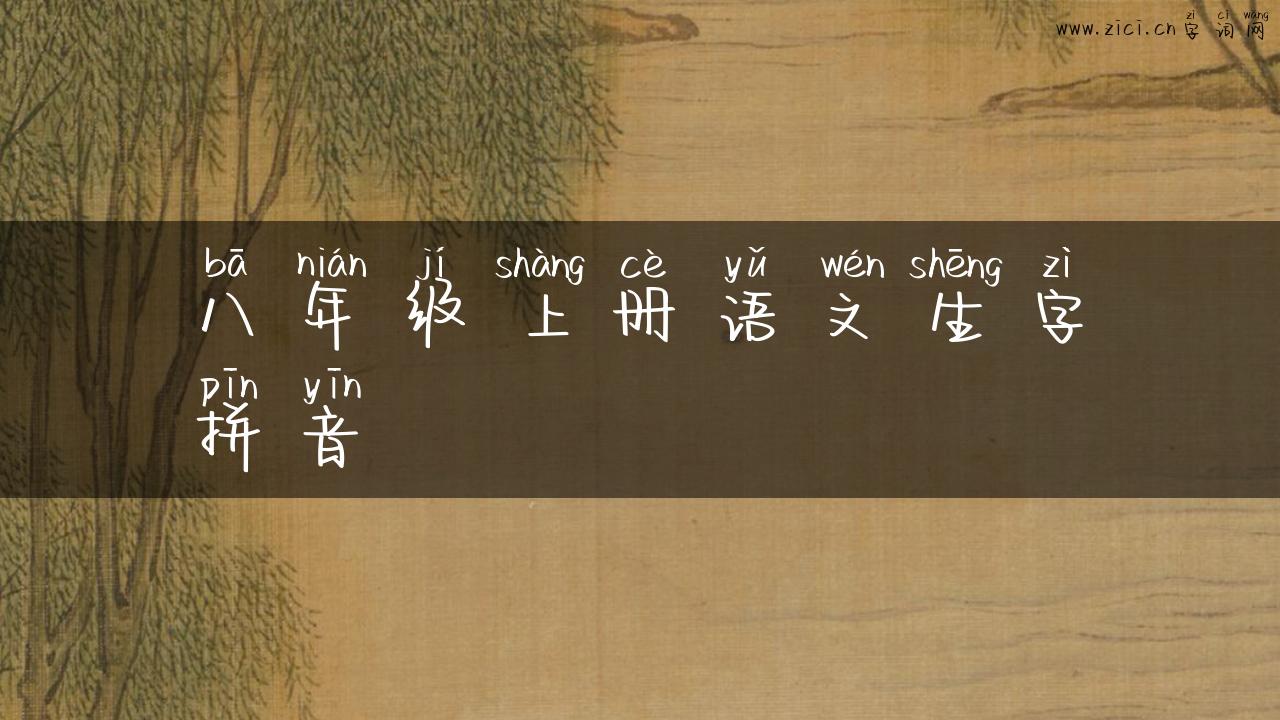 zì cí wǎng
www.zici.cn字词网
bā nián jí shàng cè yǔ wén shēng zì
八年级上册语文生字
pīn yīn
拼音